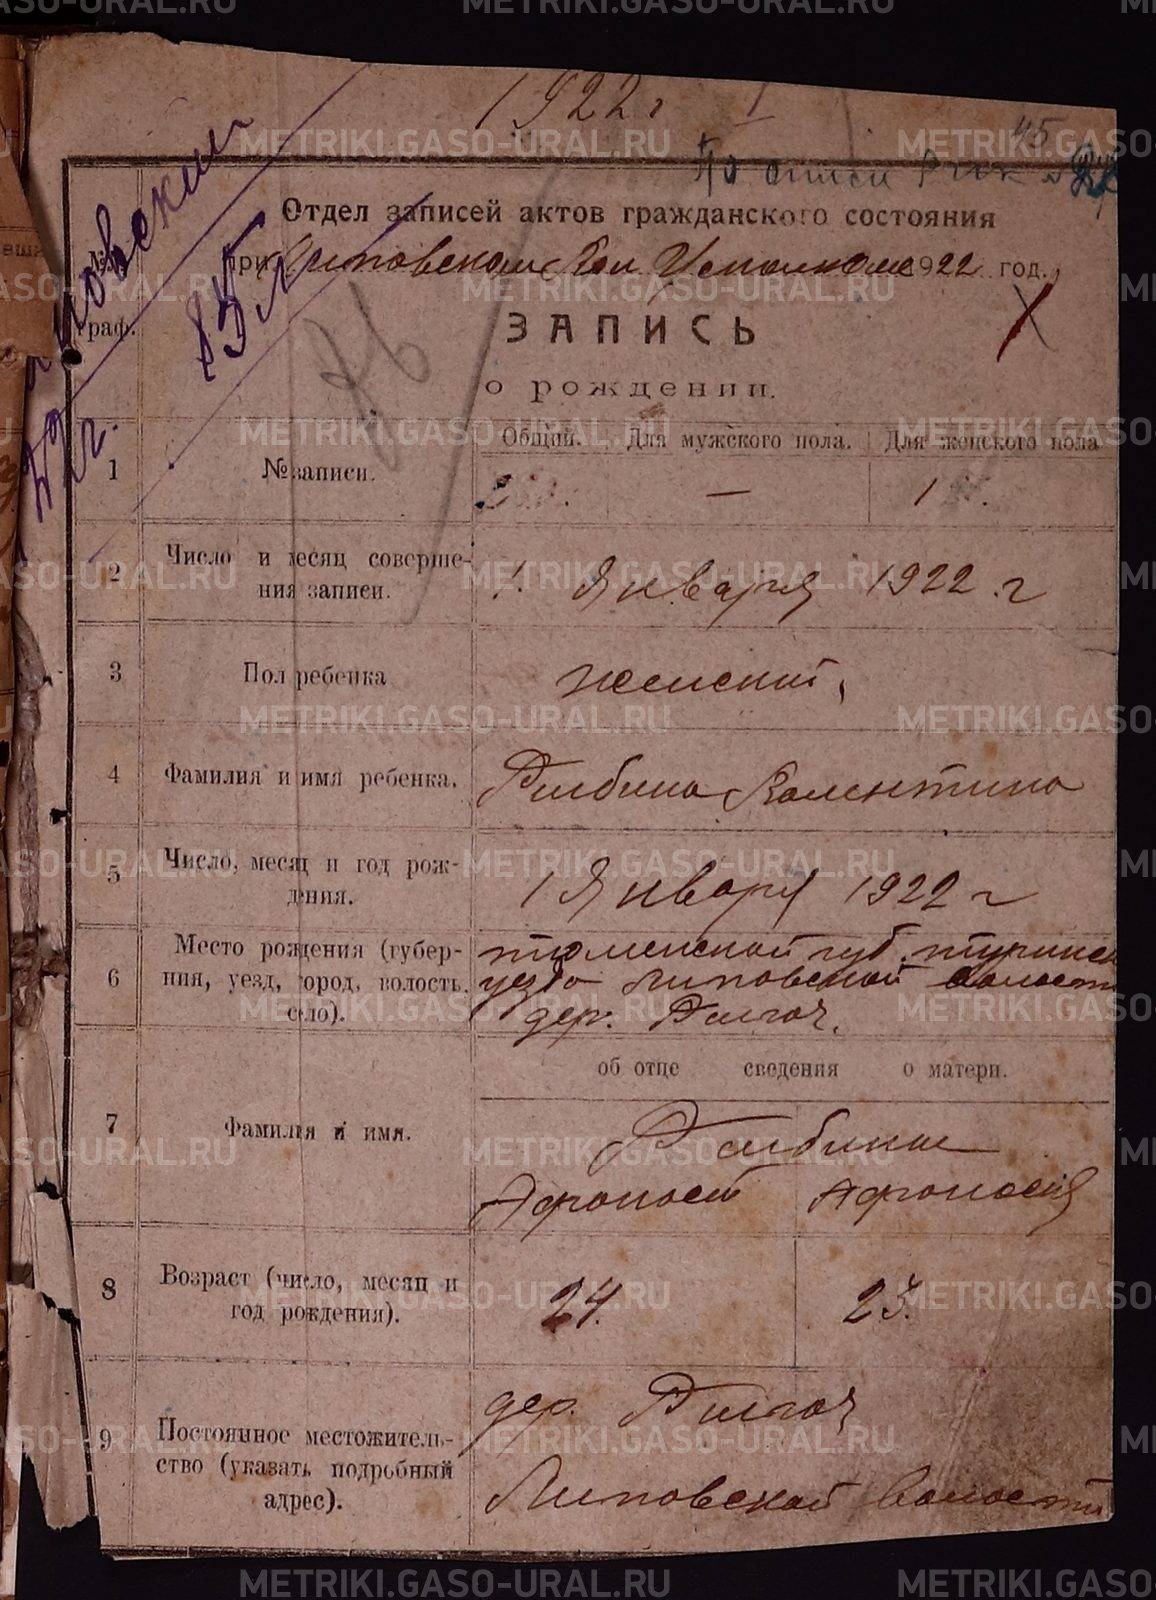 1922 г
45
По описи
Отдел записей актов гражданского состояния
при Липовском Вол. Исполкоме 1922 год.
85 л
№№
граф.
ЗАПИСЬ
о рождении.
Общий. Для мужского пола. Для женского пола
1 № записи. — 1
2 Число и месяц соверше-
ния записи. 1. Января 1922. г
3 Пол ребенка женский,
4 Фамилия и имя ребенка. Рябина Валентина
5 Число, месяц и год рож-
дения. 1 Января 1922 г
6 Место рождения (губер-
ния, уезд, город, волость,
село).
тюменской губ. туринск
уезда Липовской волости
дер.
об отце сведения о матери.
7 Фамилия и имя.
Афонасий Афонасия
8 Возраст (число, месяц и
год рождения). 24. 23.
9 Постоянное местожитель-
ство (указать подробный
адрес).
дер.
Липовской волости
METRIKI.GASO-URAL.RU